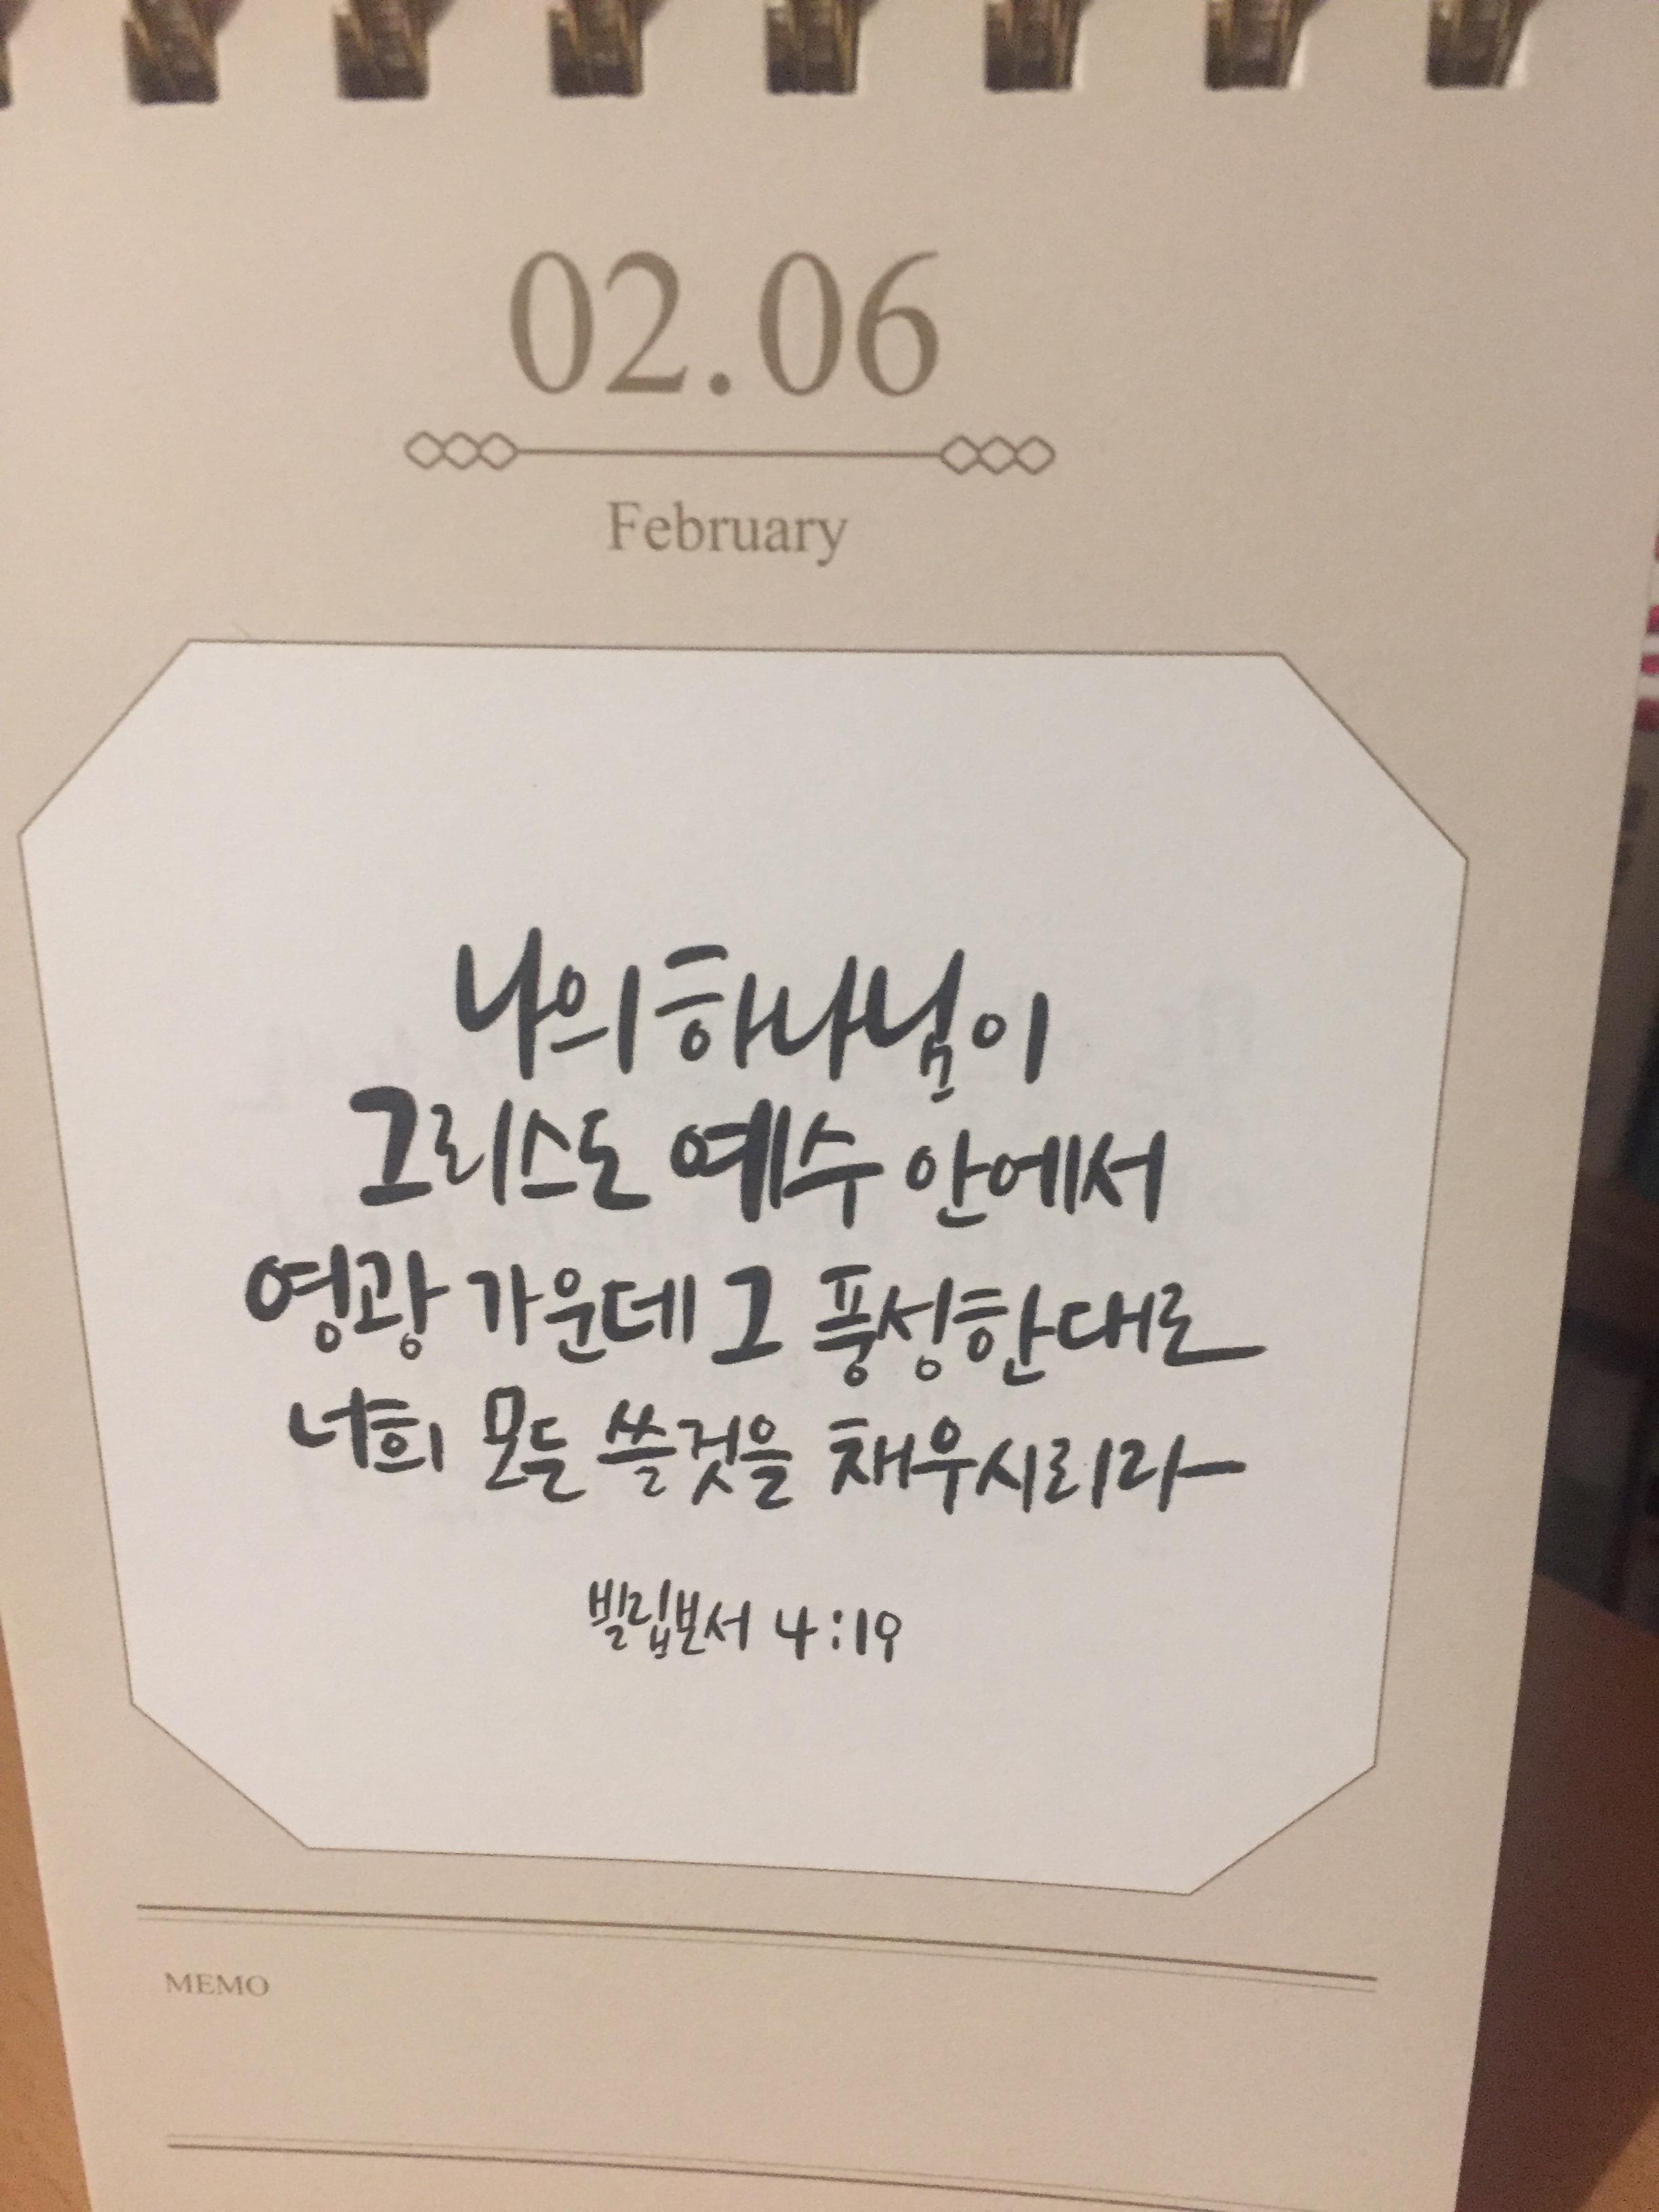 02.06
February
나의 하나님이
그리스도 예수 안에서
영광 가운데 그 풍성한대로
너희 모든 쓸것을 채우시리라
빌립보서 4:19
MEMO